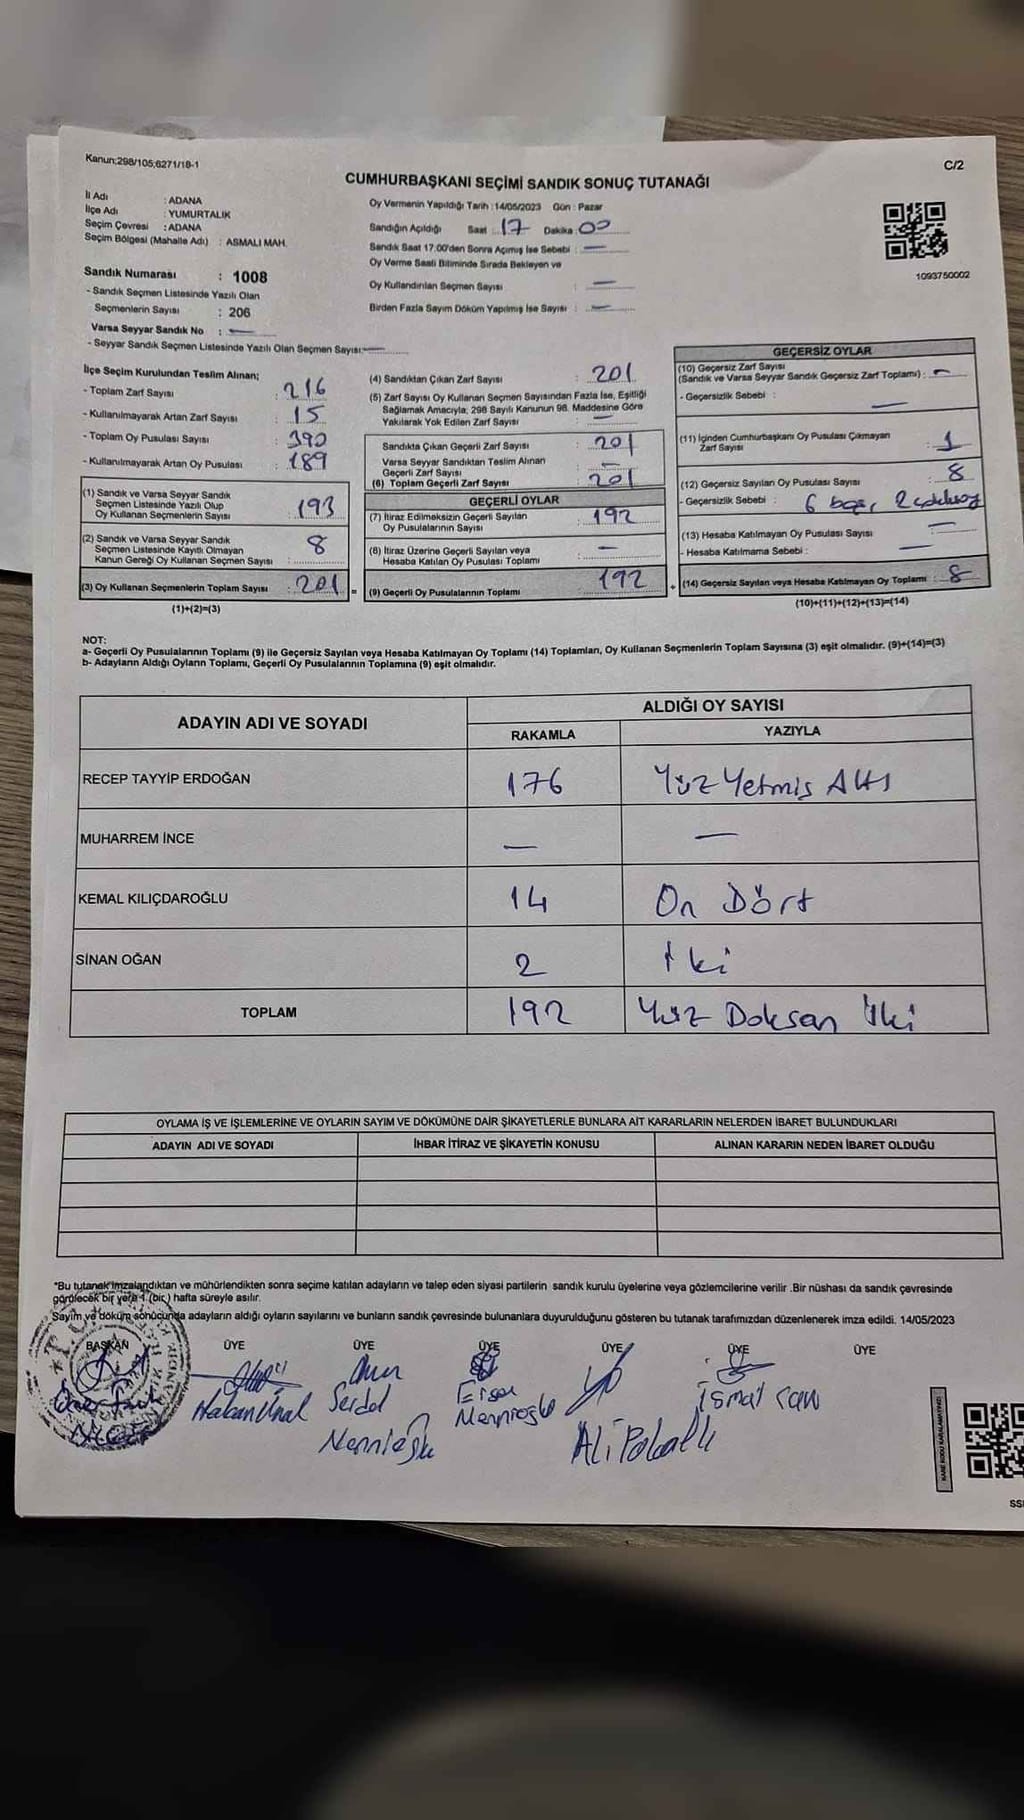 Kanun:298/105;6271/18-1
C/2
CUMHURBAŞKANI SEÇİMİ SANDIK SONUÇ TUTANAĞI
İl Adı : ADANA
İlçe Adı : YUMURTALIK
Seçim Çevresi : ADANA
Seçim Bölgesi (Mahalle Adı) : ASMALI MAH.
Sandık Numarası : 1008
- Sandık Seçmen Listesinde Yazılı Olan
Seçmenlerin Sayısı : 206
Varsa Seyyar Sandık No : —
- Seyyar Sandık Seçmen Listesinde Yazılı Olan Seçmen Sayısı: —
Oy Vermenin Yapıldığı Tarih :14/05/2023 Gün : Pazar
Sandığın Açıldığı Saat : 17 Dakika : 00
Sandık Saat 17.00'den Sonra Açımış İse Sebebi : —
Oy Verme Saati Bitiminde Sırada Bekleyen ve
Oy Kullandırılan Seçmen Sayısı : —
Birden Fazla Sayım Döküm Yapılmış İse Sayısı : —
1093750002
İlçe Seçim Kurulundan Teslim Alınan;
- Toplam Zarf Sayısı : 216
- Kullanılmayarak Artan Zarf Sayısı : 15
- Toplam Oy Pusulası Sayısı : 390
- Kullanılmayarak Artan Oy Pusulası : 189
(1) Sandık ve Varsa Seyyar Sandık
Seçmen Listesinde Yazılı Olup
Oy Kullanan Seçmenlerin Sayısı : 193
(2) Sandık ve Varsa Seyyar Sandık
Seçmen Listesinde Kayıtlı Olmayan
Kanun Gereği Oy Kullanan Seçmen Sayısı : 8
(3) Oy Kullanan Seçmenlerin Toplam Sayısı : 201
(1)+(2)=(3)
(4) Sandıktan Çıkan Zarf Sayısı : 201
(5) Zarf Sayısı Oy Kullanan Seçmen Sayısından Fazla İse, Eşitliği
Sağlamak Amacıyla, 298 Sayılı Kanunun 98. Maddesine Göre
Yakılarak Yok Edilen Zarf Sayısı : —
Sandıkta Çıkan Geçerli Zarf Sayısı : 201
Varsa Seyyar Sandıktan Teslim Alınan
Geçerli Zarf Sayısı : —
(6) Toplam Geçerli Zarf Sayısı : 201
GEÇERLİ OYLAR
(7) İtiraz Edilmeksizin Geçerli Sayılan
Oy Pusulalarının Sayısı : 192
(8) İtiraz Üzerine Geçerli Sayılan veya
Hesaba Katılan Oy Pusulası Toplamı : —
(9) Geçerli Oy Pusulalarının Toplamı : 192
GEÇERSİZ OYLAR
(10) Geçersiz Zarf Sayısı
(Sandık ve Varsa Seyyar Sandık Geçersiz Zarf Toplamı) : —
- Geçersizlik Sebebi : —
(11) İçinden Cumhurbaşkanı Oy Pusulası Çıkmayan
Zarf Sayısı : 1
(12) Geçersiz Sayılan Oy Pusulası Sayısı : 8
- Geçersizlik Sebebi : 6 boş, 2
(13) Hesaba Katılmayan Oy Pusulası Sayısı : —
- Hesaba Katılmama Sebebi : —
(14) Geçersiz Sayılan veya Hesaba Katılmayan Oy Toplamı : 8
(10)+(11)+(12)+(13)=(14)
NOT:
a- Geçerli Oy Pusulalarının Toplamı (9) ile Geçersiz Sayılan veya Hesaba Katılmayan Oy Toplamı (14) Toplamları, Oy Kullanan Seçmenlerin Toplam Sayısına (3) eşit olmalıdır. (9)+(14)=(3)
b- Adayların Aldığı Oyların Toplamı, Geçerli Oy Pusulalarının Toplamına (9) eşit olmalıdır.
ADAYIN ADI VE SOYADI
ALDIĞI OY SAYISI
RAKAMLA YAZIYLA
RECEP TAYYİP ERDOĞAN 176 Yüz Yetmiş Altı
MUHARREM İNCE — —
KEMAL KILIÇDAROĞLU 14 On Dört
SİNAN OĞAN 2 İki
TOPLAM 192 Yüz Doksan İki
OYLAMA İŞ VE İŞLEMLERİNE VE OYLARIN SAYIM VE DÖKÜMÜNE DAİR ŞİKAYETLERLE BUNLARA AİT KARARLARIN NELERDEN İBARET BULUNDUKLARI
ADAYIN ADI VE SOYADI İHBAR İTİRAZ VE ŞİKAYETİN KONUSU ALINAN KARARIN NEDEN İBARET OLDUĞU
*Bu tutanak imzalandıktan ve mühürlendikten sonra seçime katılan adayların ve talep eden siyasi partilerin sandık kurulu üyelerine veya gözlemcilerine verilir .Bir nüshası da sandık çevresinde
görülecek bir yere 1 (bir) hafta süreyle asılır.
Sayım ve döküm sonucunda adayların aldığı oyların sayılarını ve bunların sandık çevresinde bulunanlara duyurulduğunu gösteren bu tutanak tarafımızdan düzenlenerek imza edildi. 14/05/2023
BAŞKAN ÜYE ÜYE ÜYE ÜYE ÜYE ÜYE
Hakan Ünal
İsmail
Ali
KARE KODU KARALAMAYINIZ!